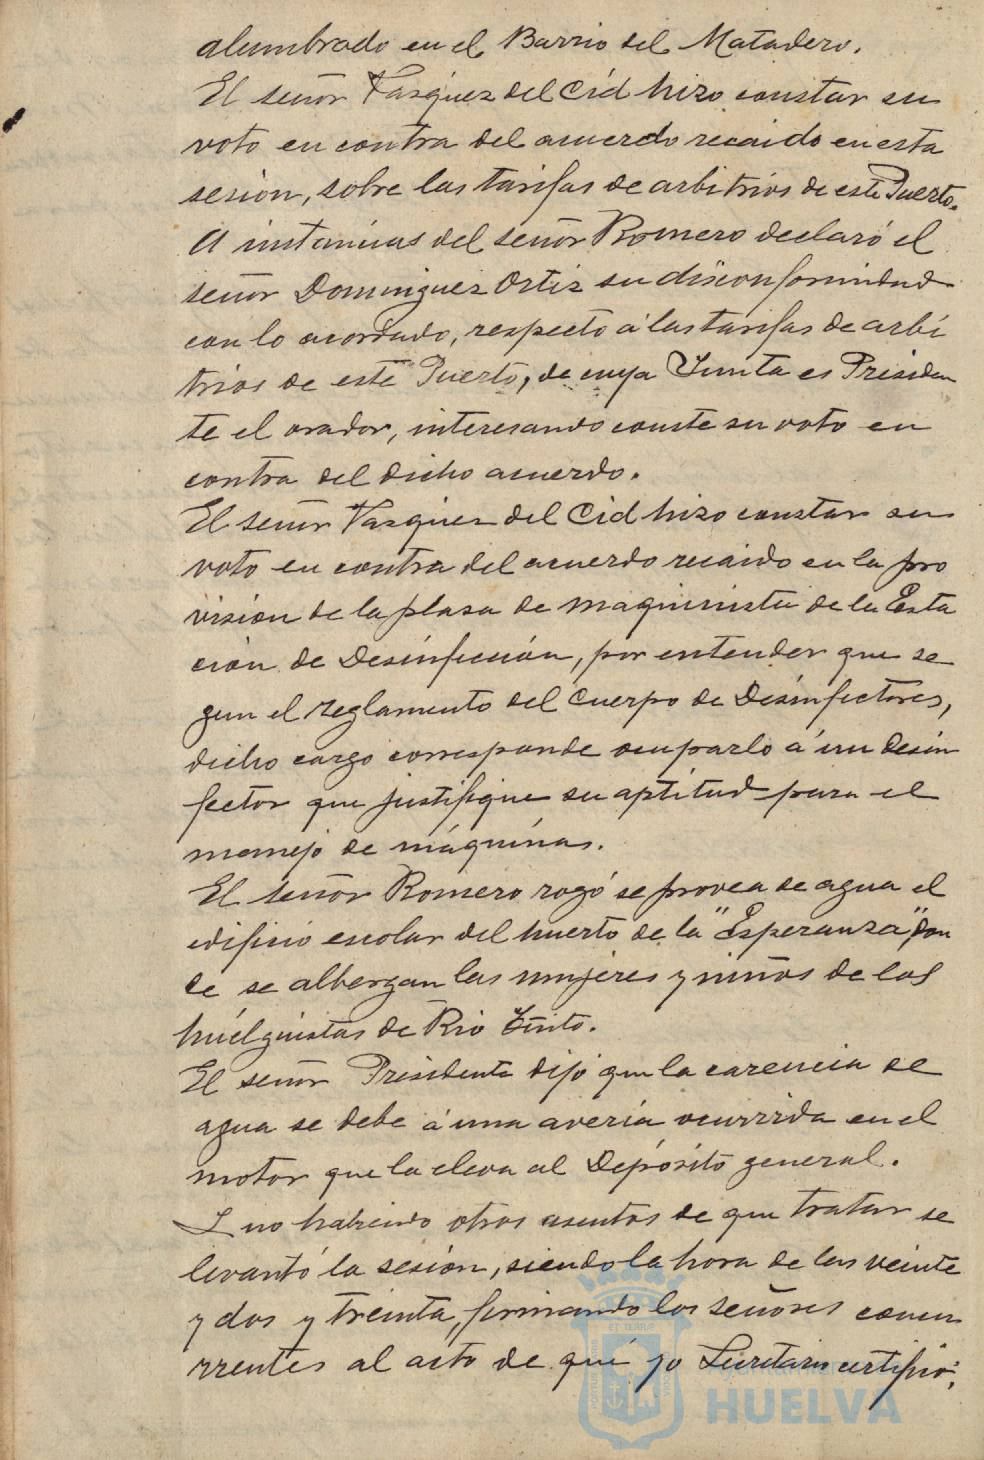 alumbrado en el Barrio del Matadero.
El señor Vazquez del Cid hizo constar su
voto en contra del acuerdo recaido en esta
sesion, sobre las tarifas de arbitrios de este Puerto.
A instancias del señor Romero declaró el
señor Dominguez Ortiz su disconformidad
con lo acordado, respecto á las tarifas de arbi
trios de este Puerto, de cuya Junta es Presiden
te el orador, interesando conste su voto en
contra del dicho acuerdo.
El señor Vazquez del Cid hizo constar su
voto en contra del acuerdo recaido en la pro
vision de la plaza de maquinista de la Esta
ción de Desinfección, por entender que se
gun el reglamento del Cuerpo de Desinfectores,
dicho cargo corresponde ocuparlo á un desin
fector que justifique su aptitud para el
manejo de máquinas.
El señor Romero rogó se provea de agua el
edificio escolar del huerto de la "Esperanza", don
de se albergan las mujeres y niños de los
huelguistas de Rio Tinto.
El señor Presidente dijo que la carencia de
agua se debe á una avería ocurrida en el
motor que la eleva al Depósito general.
Y no habiendo otros asuntos de que tratar se
levantó la sesión, siendo la hora de las veinte
y dos y treinta, firmando los señores concu
rrentes al acto de que yo Secretario certifico.
Ayuntamiento de
HUELVA